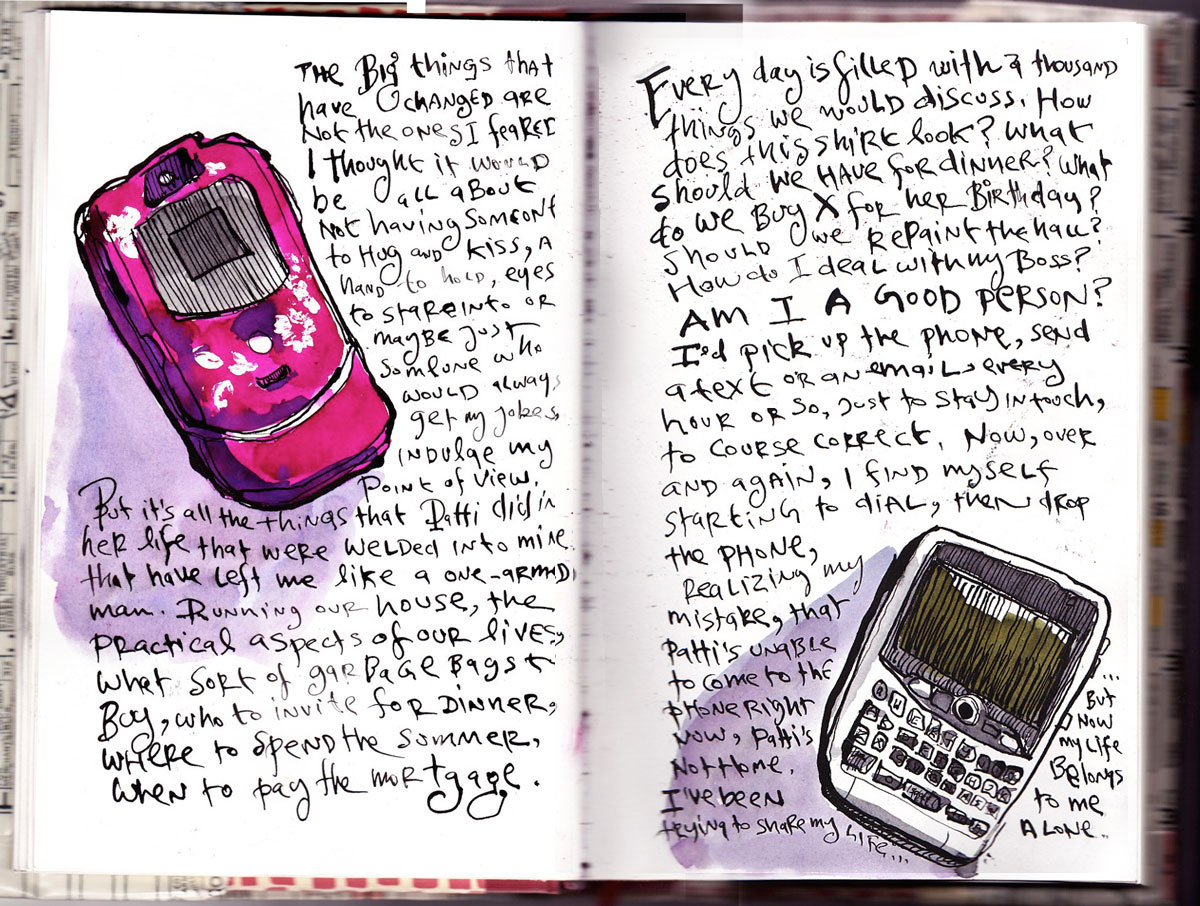 THE Big things that
have changed are
Not the ones I feared
I thought it would
be all about
Not having someone
to Hug and kiss, a
hand to hold, eyes
to stare into or
maybe just
someone who
would always
get my jokes,
indulge my
point of view.
But it's all the things that Patti did in
her life that were welded into mine
that have left me like a one-armed
man. Running our house, the
practical aspects of our lives,
what sort of garbage bags to
Buy, who to invite for dinner,
where to spend the summer,
when to pay the mortgage.
Every day is filled with a thousand
things we would discuss. How
does this shirt look? What
should we have for dinner? What
do we buy X for her Birthday?
Should we repaint the hall?
How do I deal with my Boss?
AM I A GOOD PERSON?
I'd pick up the phone, send
a text or an email, every
hour or so, just to stay in touch,
to course correct. Now, over
and again, I find myself
starting to dial, then drop
the phone,
realizing my
mistake, that
Patti's unable
to come to the
phone right
now, Patti's
not home.
I've been
trying to share my life...
... But
now
my life
Belongs
to me
alone..